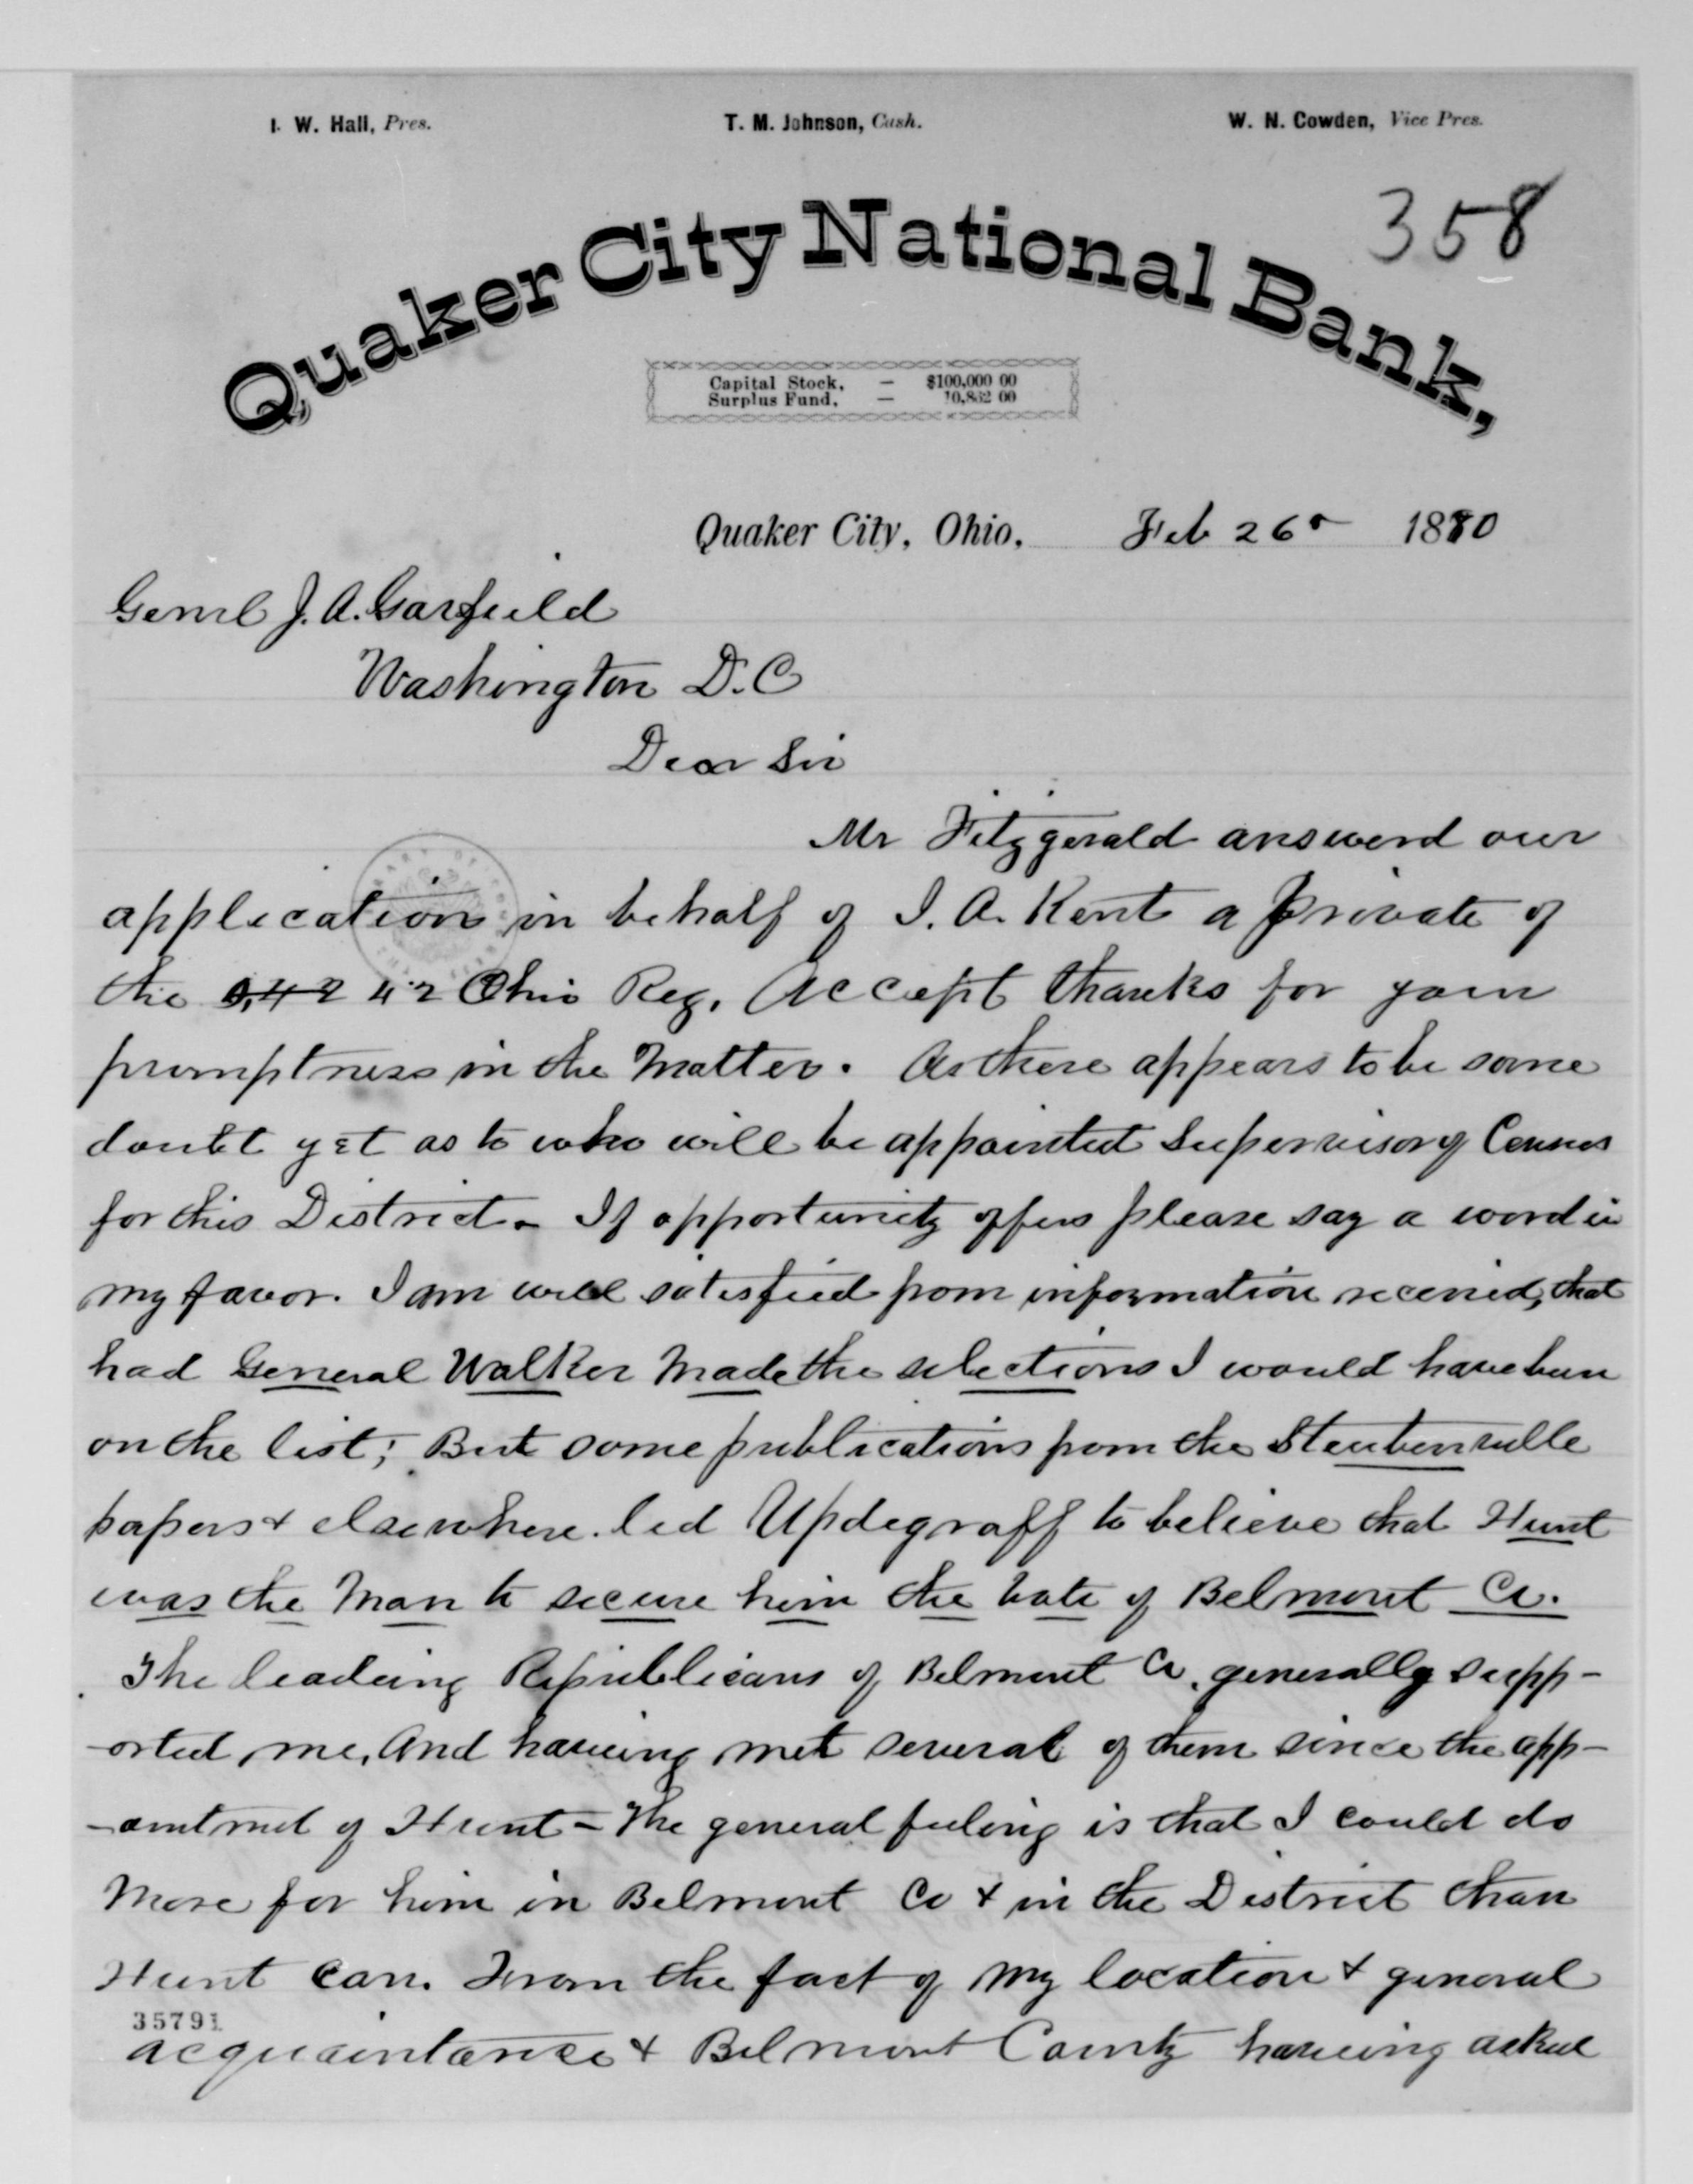 I. W. Hall, Pres. T. M. Johnson, Cash. W. N. Cowden, Vice Pres.
358
Quaker City National Bank,
Capital Stock, — $100,000 00
Surplus Fund, — 10,862 00
Quaker City, Ohio, Feb 26 1880
Genrl J. A. Garfield
Washington D.C
Dear Sir
Mr Fitzgerald answerd our
application in behalf of I. A. Kent a private of
the 42 Ohio Reg. Accept thanks for your
promptness in the Matter. As there appears to be some
doubt yet as to who will be appointed Supervisor of Census
for this District. If opportunity offers please say a word in
my favor. I am well satisfied from information received, that
had General Walker Made the selections I would have been
on the list; But some publications from the Steubenville
papers & elsewhere led Updegraff to believe that Hunt
was the Man to secure him the vote of Belmont Co.
The leading Republicans of Belmont Co. generally supp-
-orted me, And haveing met several of them since the app-
-ointmet of Hunt - The general feeling is that I could do
More for him in Belmont Co & in the District than
Hunt can. From the fact of my location & general
35791
acquaintance & Belmont County haveing asked